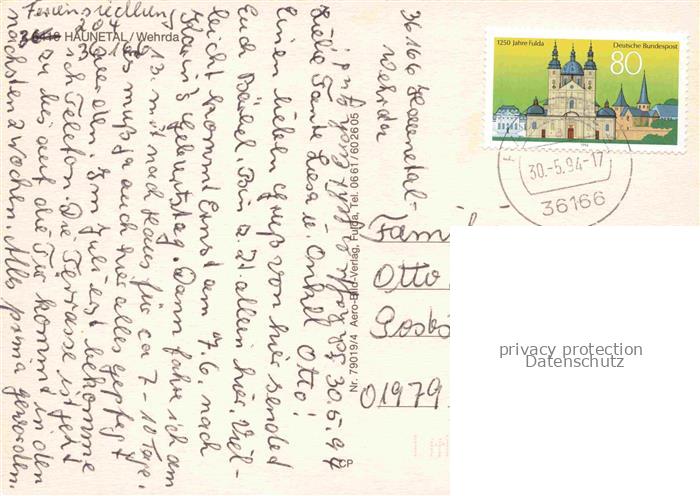 Feriensiedlung
36166 HAUNETAL / Wehrda
36166 Haunetal-
Wehrda
30.5.94
Liebe Tante Lisa u. Onkel Otto!
Einen lieben Gruß von hier sendet
Euch Bärbel. Bin z. Zt. allein hier. Viel-
leicht kommt Ernst am 7.6. nach
Klaus's Geburtstag. Dann fahre ich am
13. mit nach Haus für ca 7 - 10 Tage.
Es mußte auch hier alles gepflegt
werden. Im Juli erst bekomme
ich Telefon. Die Terrasse ist jetzt
bis auf die Tür kommt in den
nächsten Wochen. Alles prima geworden.
Nr. 79019/4 Aero-Bild-Verlag, Fulda, Tel. 0661/602605
CP
1250 Jahre Fulda
Deutsche Bundespost
80
30.-5.94-17
36166
Fami
Otto
01979
privacy protection
Datenschutz